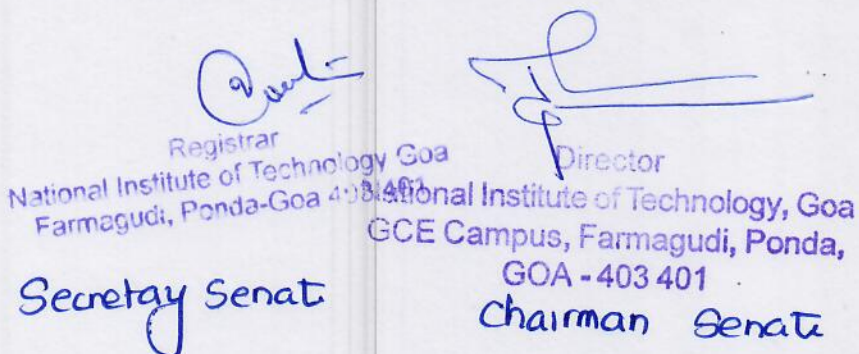 Registrar
National Institute of Technology Goa
Farmagudi, Ponda-Goa 403 401
Secretay Senate
Director
National Institute of Technology, Goa
GCE Campus, Farmagudi, Ponda,
GOA - 403 401
Chairman Senate